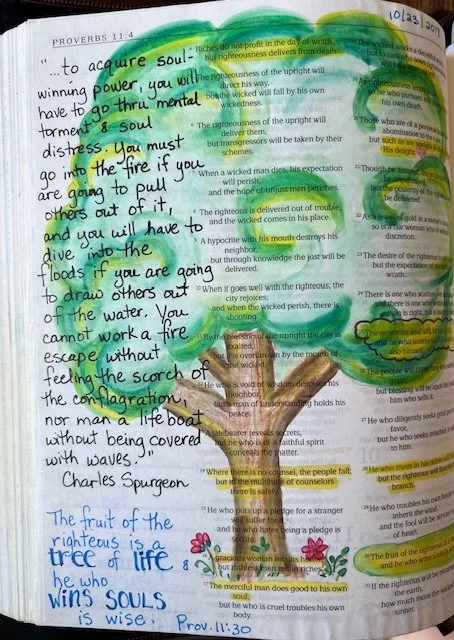 10/23/201
PROVERBS 11:4
"...to acquire soul-
winning power, you will
have to go thru mental
torment & soul
distress. You must
go into the fire if you
are going to pull
others out of it,
and you will have to
dive into the
floods if you are going
to draw others out
of the water. You
cannot work a fire
escape without
feeling the scorch of
the conflagration,
nor man a lifeboat
without being covered
with waves."
Charles Spurgeon
The fruit of the
righteous is a
tree of life &
he who
wins souls
is wise. Prov. 11:30
Riches do not profit in the day of wrath,
but righteousness delivers from death.
The righteousness of the upright will
direct his way,
but the wicked will fall by his own
wickedness.
6 The righteousness of the upright will
deliver them,
but transgressors will be taken by their
schemes.
7 When a wicked man dies, his expectation
will perish,
and the hope of unjust men perishes.
8 The righteous is delivered out of trouble,
and the wicked comes in his place.
9 A hypocrite with his mouth destroys his
neighbor,
but through knowledge the just will be
delivered.
10 When it goes well with the righteous, the
city rejoices;
and when the wicked perish, there is
shouting.
By the blessing of the upright the city is
exalted,
but is overthrown by the mouth of
the wicked.
He who is void of wisdom despises his
neighbor,
but a man of understanding holds his
peace.
A talebearer reveals secrets,
but he who is of a faithful spirit
conceals the matter.
Where there is no counsel, the people fall;
but in the multitude of counselors
there is safety.
He who puts up a pledge for a stranger
will suffer for it,
and he who hates being a pledge is
A gracious woman retains honor,
but ruthless men retain riches.
17 The merciful man does good to his own
soul,
but he who is cruel troubles his own
body.
The wicked works a deceitful
but to
so he who pursues evil
his own death.
Those who are of a perverse
abomination to the
but such as are upright
His delight.
21 Though
be
but the posterity of the
be delivered.
22 As a jewel of gold in a swine's
so is a fair woman who is without
discretion.
23 The desire of the righteous
but the expectation of the
wrath.
24 There is one who scatters,
and there is one who
is right,
The generous soul will be
and he who waters
also himself.
The people will curse
but blessing will be upon the
him who sells it.
27 He who diligently seeks good
favor,
but he who seeks mischief,
to him.
28 He who trusts in his riches will
but the righteous will flourish
branch.
29 He who troubles his own house
inherit the wind,
and the fool will be servant
of heart.
30 The fruit of the righteous is a
and he who wins souls is
31 If the righteous will be recompensed
the earth,
how much more the wicked
sinner.